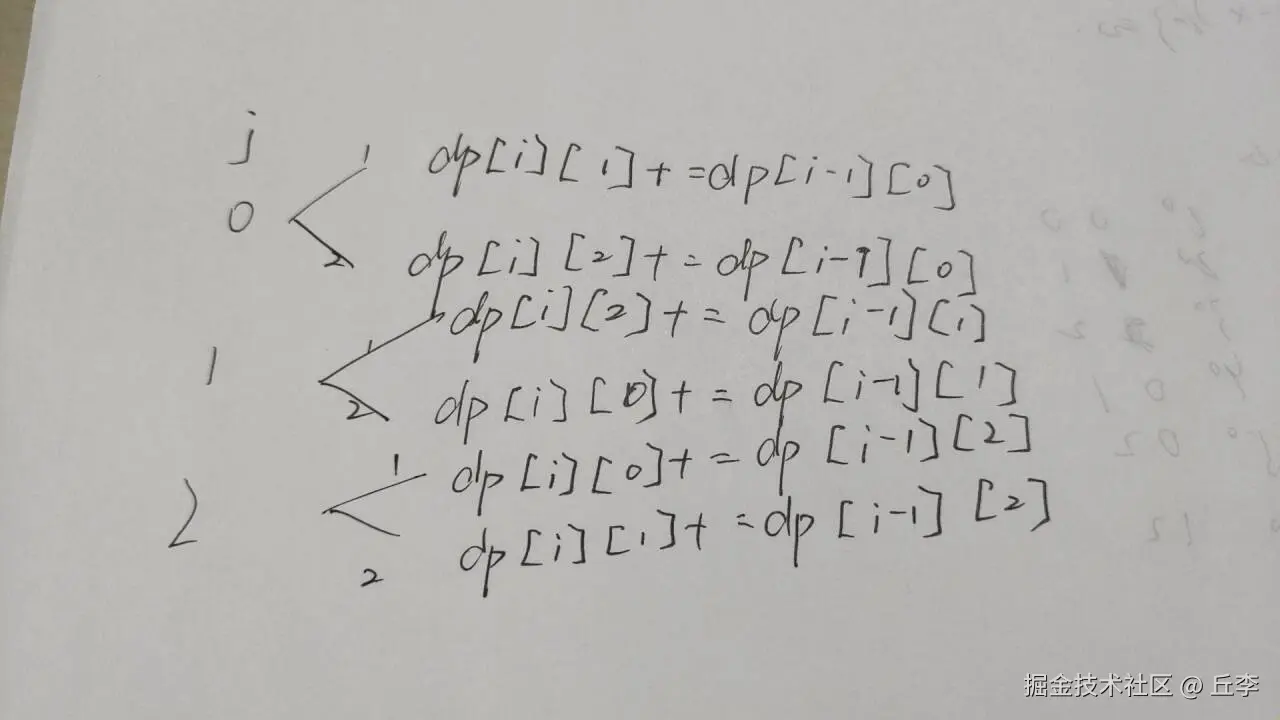 j
0
1 dp[i][1]+=dp[i-1][0]
2 dp[i][2]+=dp[i-1][0]
1
1 dp[i][2]+=dp[i-1][1]
2 dp[i][0]+=dp[i-1][1]
2
1 dp[i][0]+=dp[i-1][2]
2 dp[i][1]+=dp[i-1][2]
掘金技术社区 @ 丘李